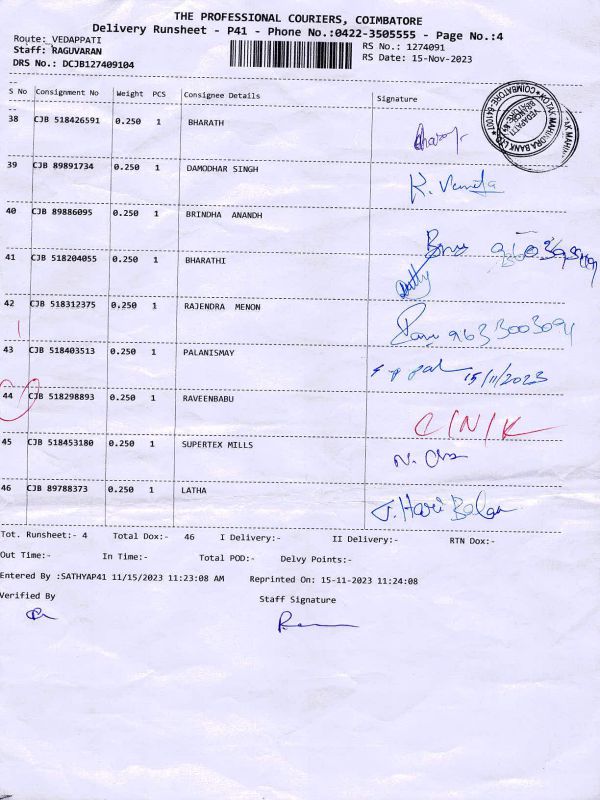 THE PROFESSIONAL COURIERS, COIMBATORE
Delivery Runsheet - P41 - Phone No.:0422-3505555 - Page No.:4
Route: VEDAPPATI
Staff: RAGUVARAN
RS No.: 1274091
RS Date: 15-Nov-2023
DRS No.: DCJB127409104
S No Consignment No Weight PCS Consignee Details Signature
38 CJB 518426591 0.250 1 BHARATH
39 CJB 89891734 0.250 1 DAMODHAR SINGH
40 CJB 89886095 0.250 1 BRINDHA ANANDH
41 CJB 518204055 0.250 1 BHARATHI
42 CJB 518312375 0.250 1 RAJENDRA MENON 9633003094
43 CJB 518403513 0.250 1 PALANISMAY 15/11/2023
44 CJB 518298893 0.250 1 RAVEENBABU C/N/K
45 CJB 518453180 0.250 1 SUPERTEX MILLS
46 CJB 89788373 0.250 1 LATHA J. Hari Balan
Tot. Runsheet:- 4 Total Dox:- 46 I Delivery:- II Delivery:- RTN Dox:-
Out Time:- In Time:- Total POD:- Delvy Points:-
Entered By :SATHYAP41 11/15/2023 11:23:08 AM Reprinted On: 15-11-2023 11:24:08
Verified By Staff Signature